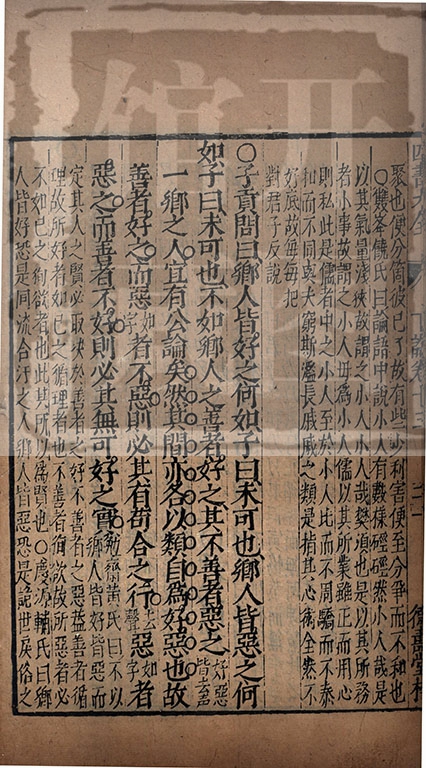 聚也便分箇彼已了故有些少利害便至分爭而不和也
○雙峯饒氏曰論語中說小人有數樣硜硜然小人哉是
以其氣量淺狹故謂之小人小人哉樊須也是以其所務
者小事故謂之小人毋爲小人儒以其所業雖正而用心
則私此是儒者中之小人至於小人比而不周驕而不泰
和而不同或夫窮斯濫長戚戚之類是指其心術全然不
好底故每每把
對君子反說
○子貢問曰鄉人皆好之何如子曰未可也鄉人皆惡之何
如子曰未可也不如鄉人之善者好之其不善者惡之好惡皆去聲
一鄉之人宜有公論矣然其間亦各以類自爲好惡也故
善者好之而惡如字者不惡則必其有苟合之行去聲惡如字者
惡之而善者不好則必其無可好之實勉齋黃氏曰不以鄉人皆好皆惡而
定其人之賢必取決於善者之好不善者之惡蓋善者循
理故所好者如已之循理者也不善者徇欲故所惡者必
不如已之徇欲者也此其所以爲賢也○慶源輔氏曰鄉
人皆好恐是同流合汙之人鄉人皆惡恐是詭世戾俗之
四書大全